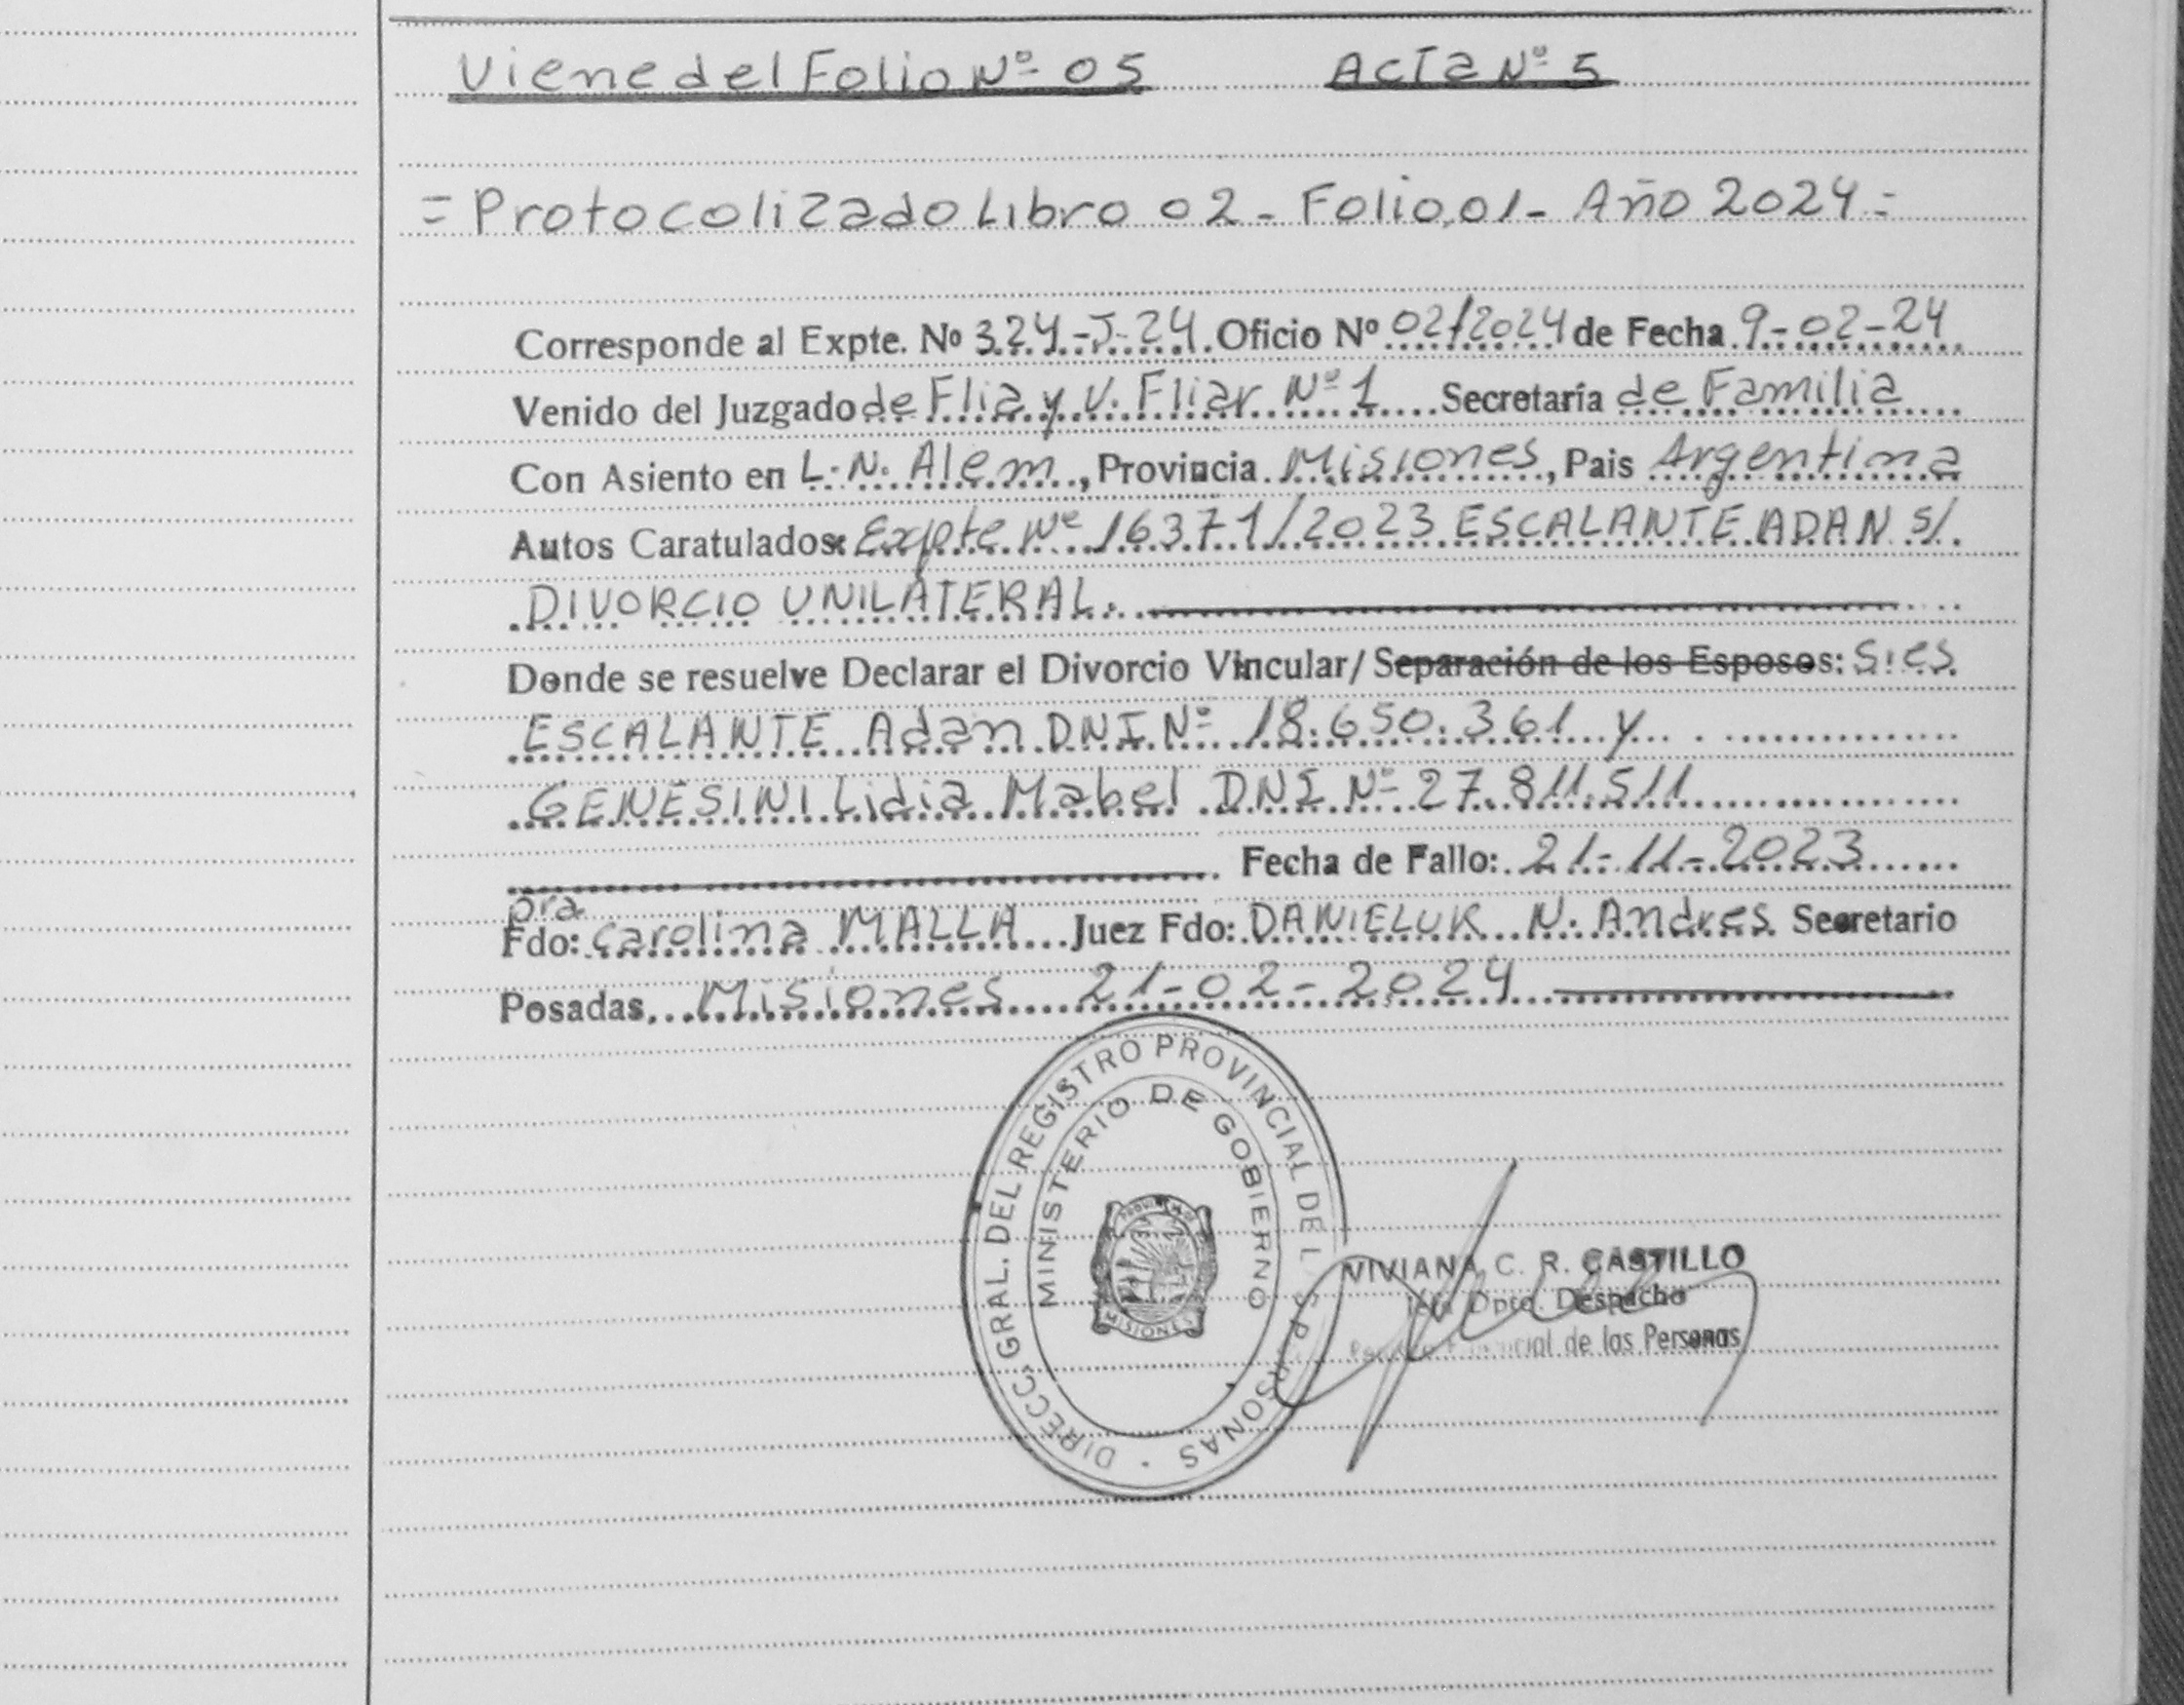 Viene del Folio Nº 05 Acta Nº 5
= Protocolizado Libro 02 - Folio 01 - Año 2024 =
Corresponde al Expte. Nº 324-J-24. Oficio Nº 02/2024 de Fecha 9-02-24
Venido del Juzgado de Flia y V. Fliar Nº 1 Secretaría de Familia
Con Asiento en L. N. Alem, Provincia Misiones, Pais Argentina
Autos Caratulados: Expte Nº 16371/2023 ESCALANTE ADAN S/
DIVORCIO UNILATERAL.
Donde se resuelve Declarar el Divorcio Vincular/ Separación de los Esposos: S.res
ESCALANTE Adan DNI Nº 18.650.361 y
GENESINI Lidia Mabel DNI Nº 27.811.511
Fecha de Fallo: 21-11-2023
Dra
Fdo: Carolina MALLA Juez Fdo: DANIELUK N. Andres Secretario
Posadas, Misiones 21-02-2024
DIRECC. GRAL. DEL REGISTRO PROVINCIAL DE LAS PERSONAS
MINISTERIO DE GOBIERNO
MISIONES
VIVIANA C. R. CASTILLO
Jefa Dpto. Despacho
Provincial de las Personas